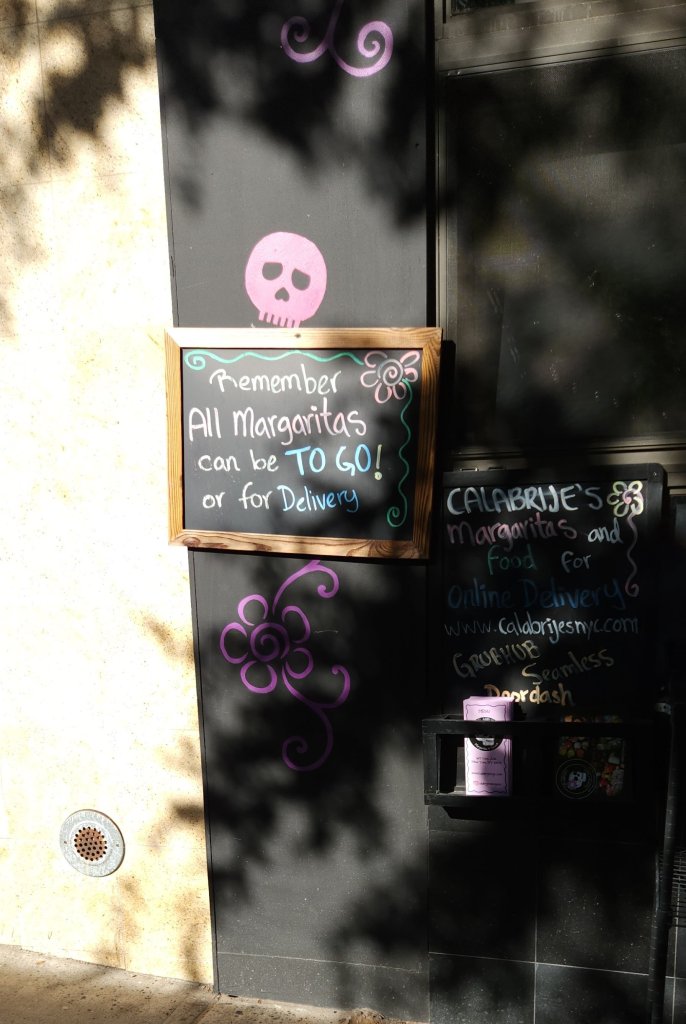 Remember
All Margaritas
can be TO GO!
or for Delivery
CALABRIJE'S
Margaritas and
Food for
Online Delivery
www.calabrijesnyc.com
GRUBHUB
Seamless
Doordash